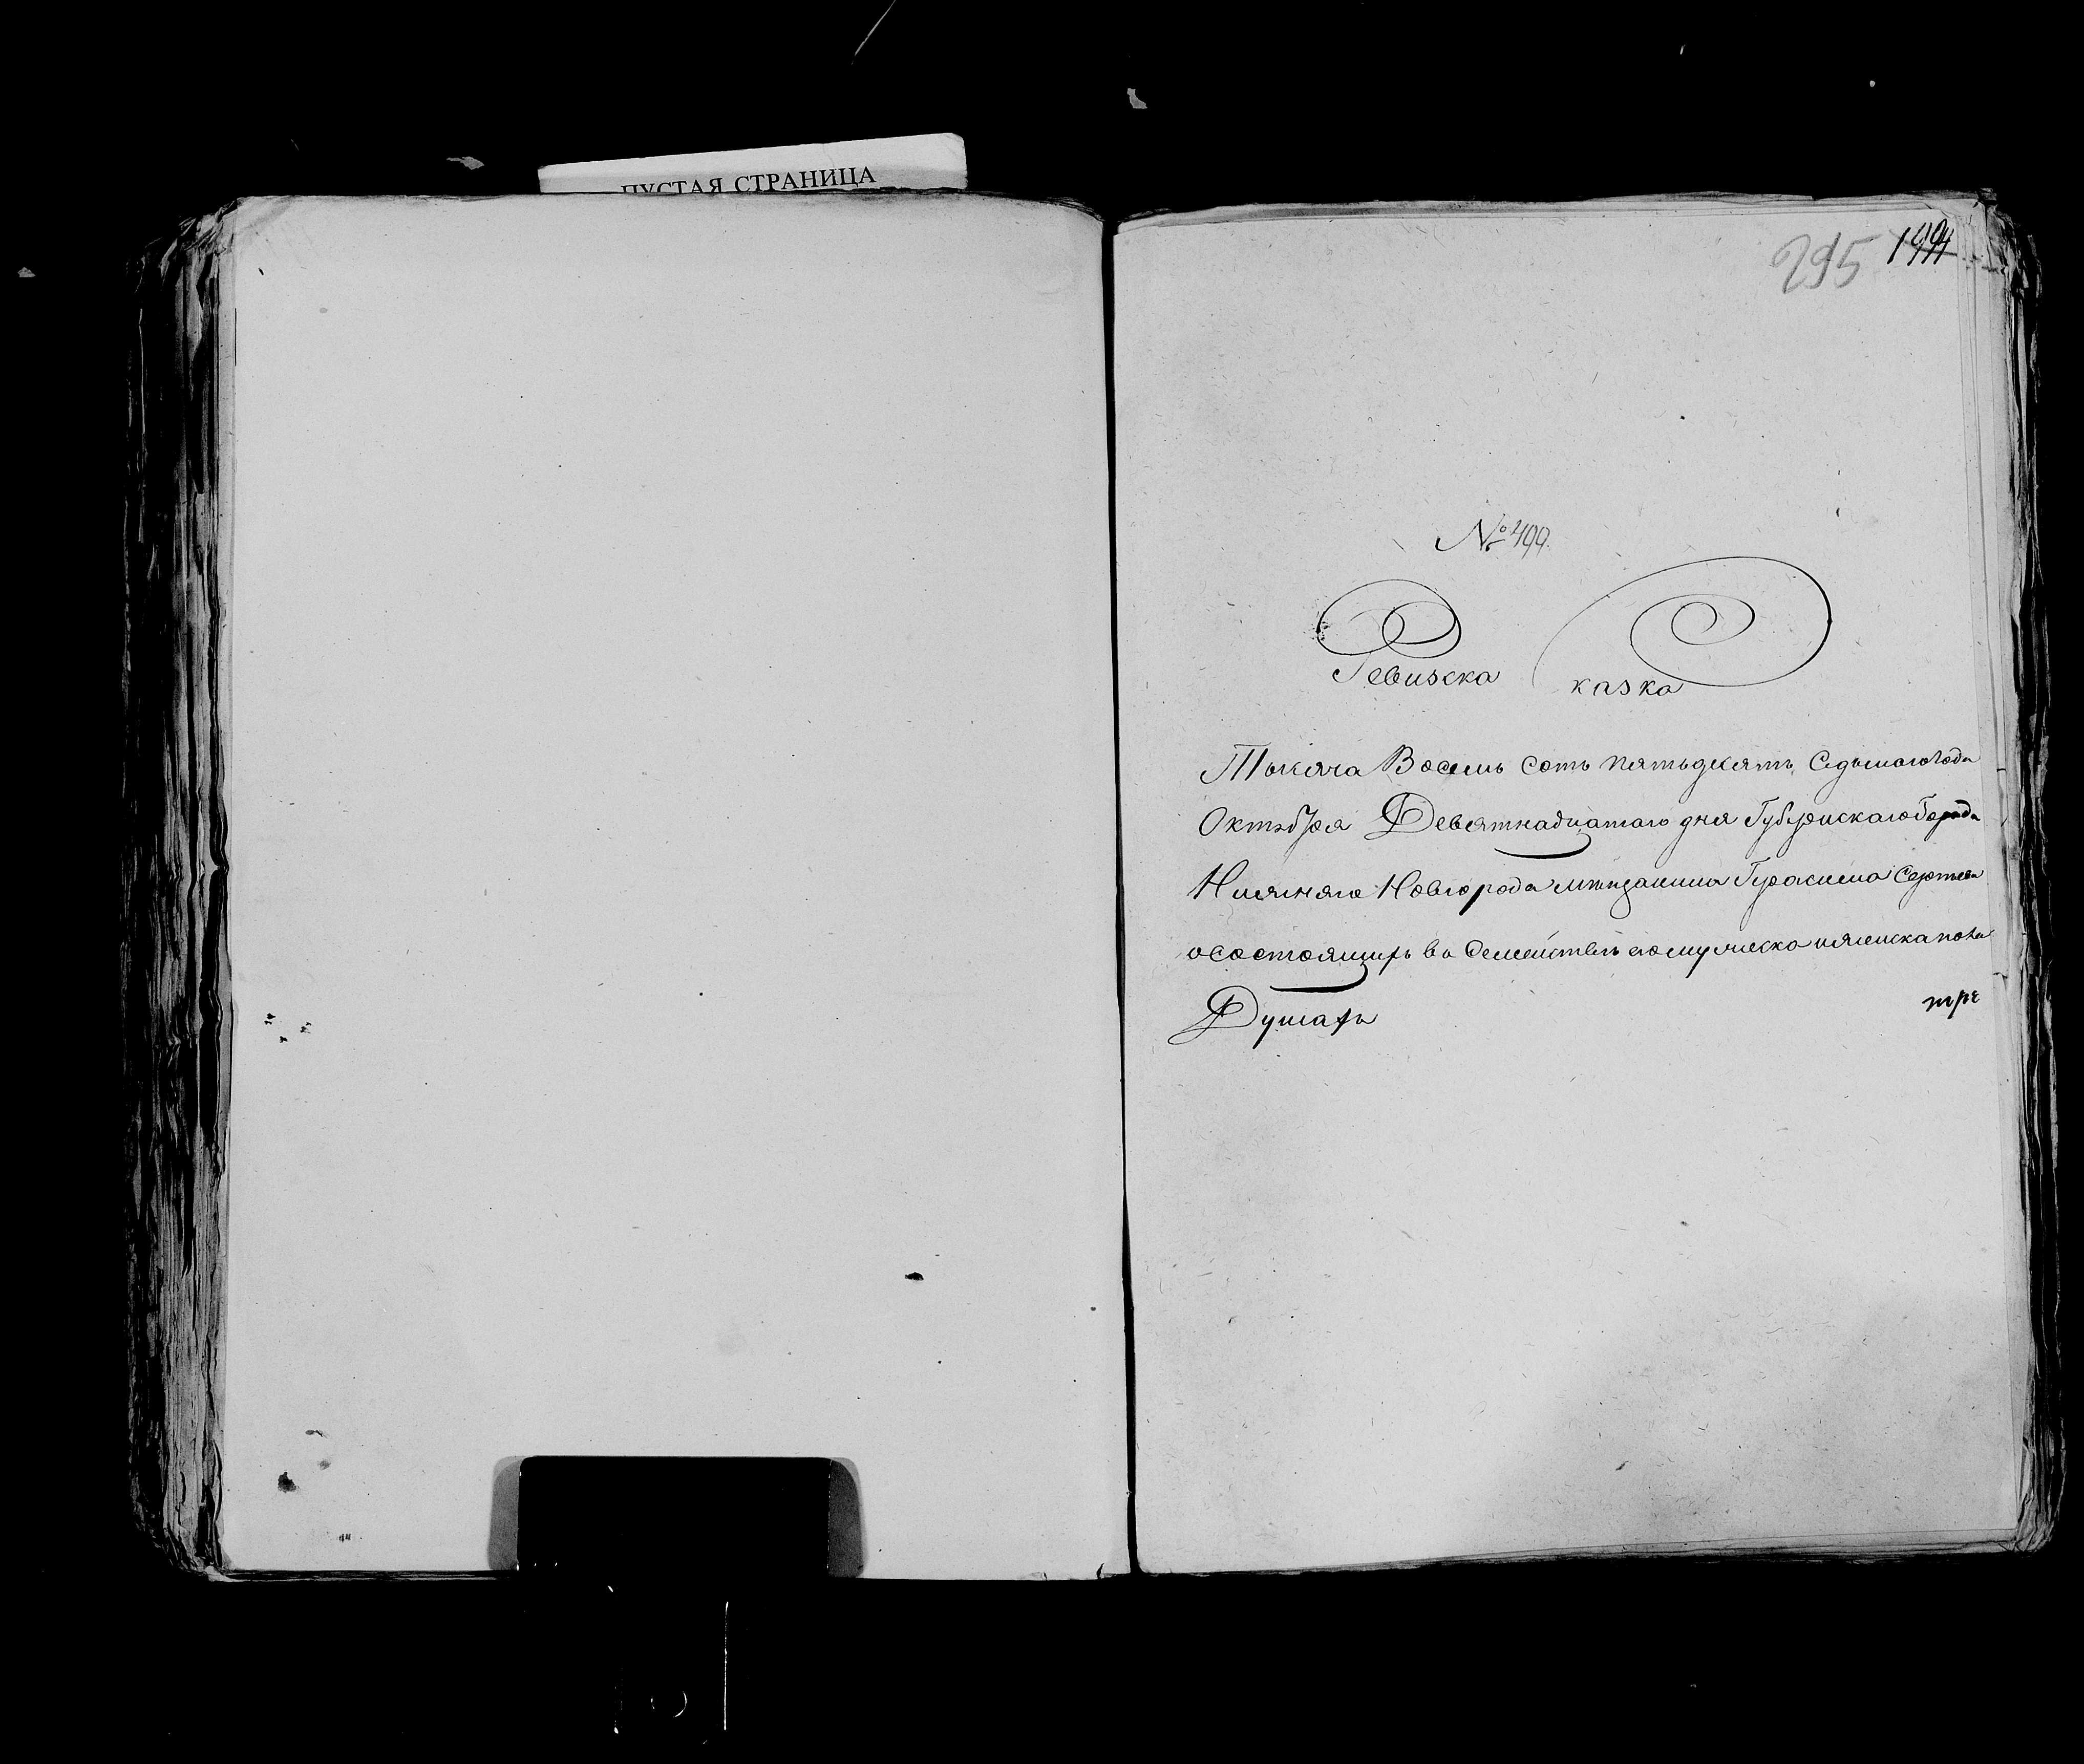 ПУСТАЯ СТРАНИЦА
295 1994
№ 499.
Ревизска Сказка
Тысяча Восемь сотъ пятьдесятъ Седьмого года
Октября Девятнадцатаго дня Губернскаго Города
Нижняго Новгорода мещанина Герасима Сергеева
о состоящихъ въ Семействе его мужеска и женска пола
Душахъ